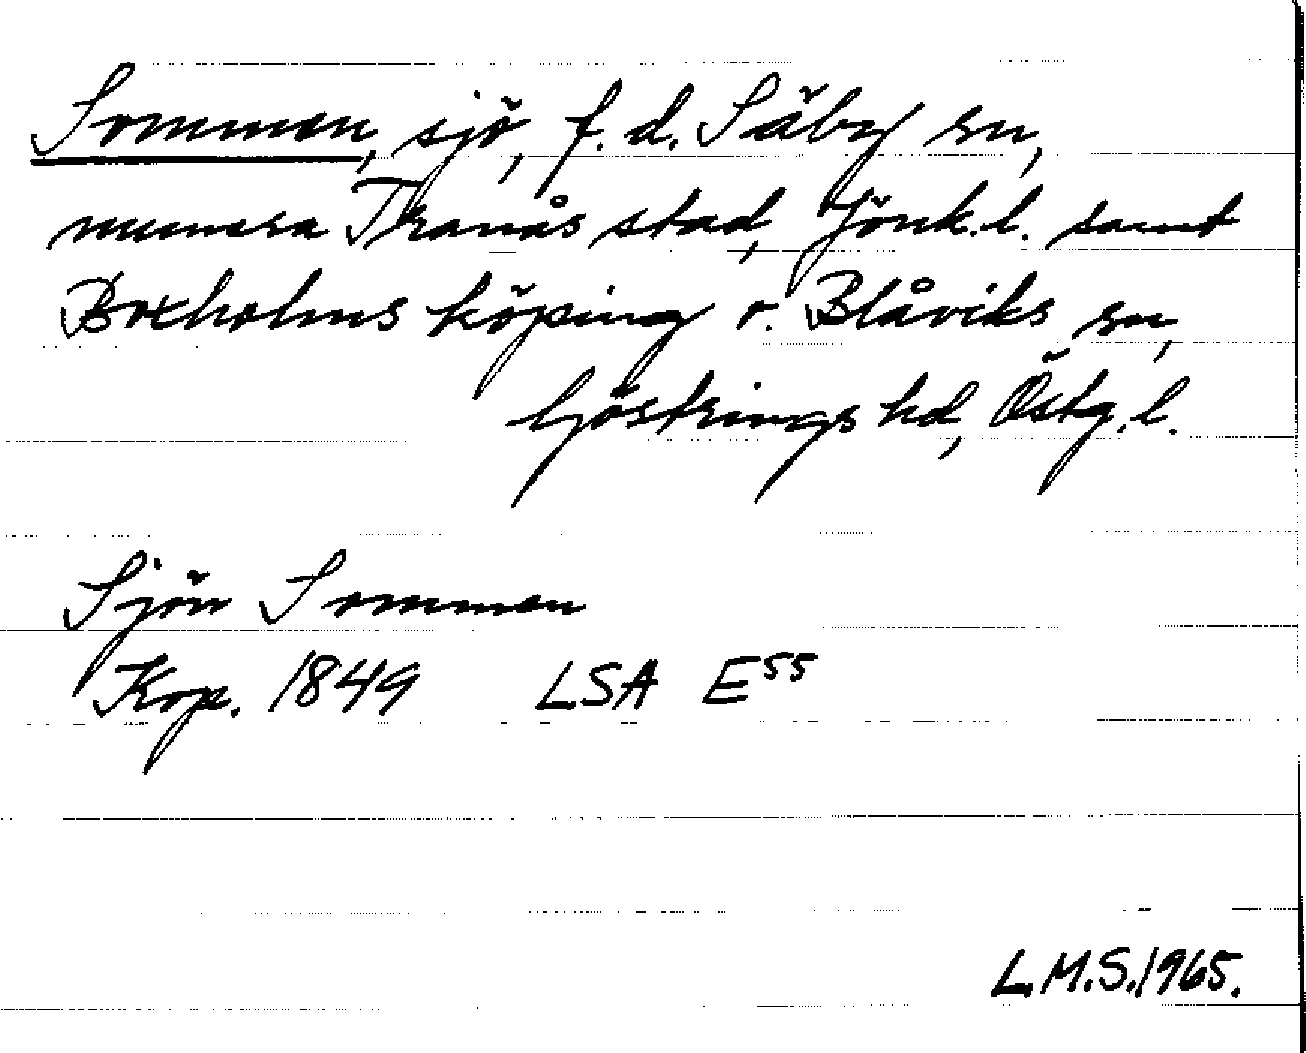 Sommen, sjö, f. d. Säby sn,
numera Tranås stad, Jönk. l. samt
Boxholms köping o. Blåviks sn,
Göstrings hd, Östg. l.
Sjön Sommen
Kop. 1849 LSA E55
L.M.S. 1965.